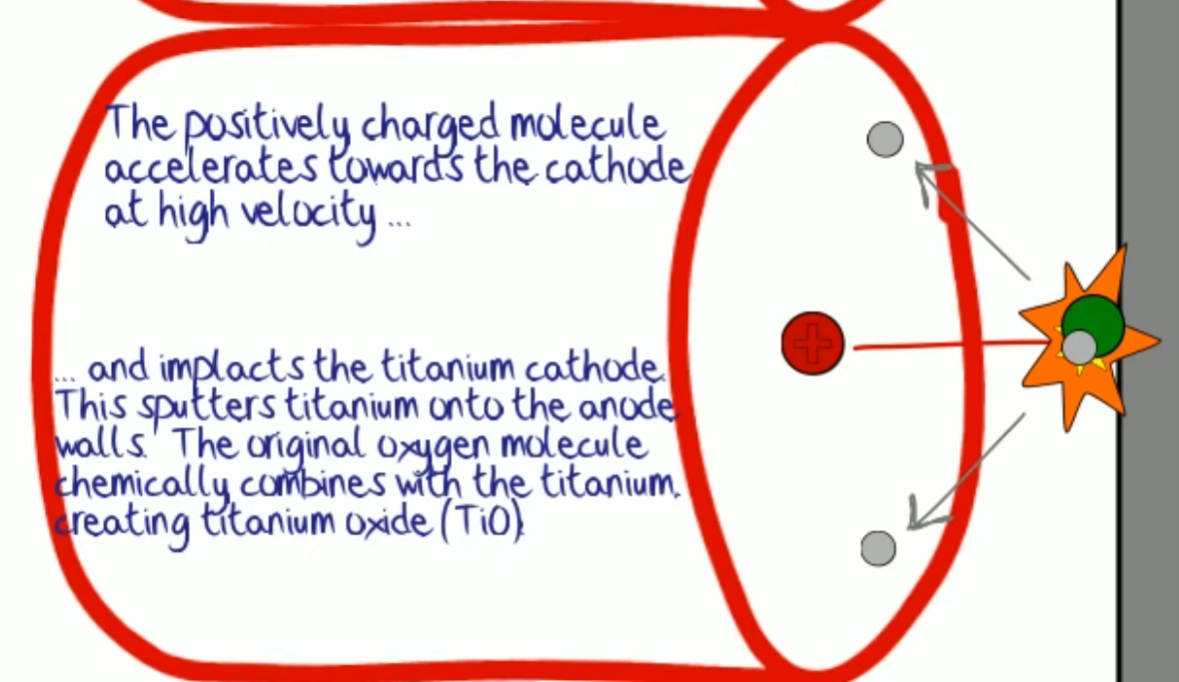 The positively charged molecule
accelerates towards the cathode
at high velocity ...
... and implacts the titanium cathode.
This sputters titanium onto the anode
walls. The original oxygen molecule
chemically combines with the titanium.
creating titanium oxide (TiO)
+